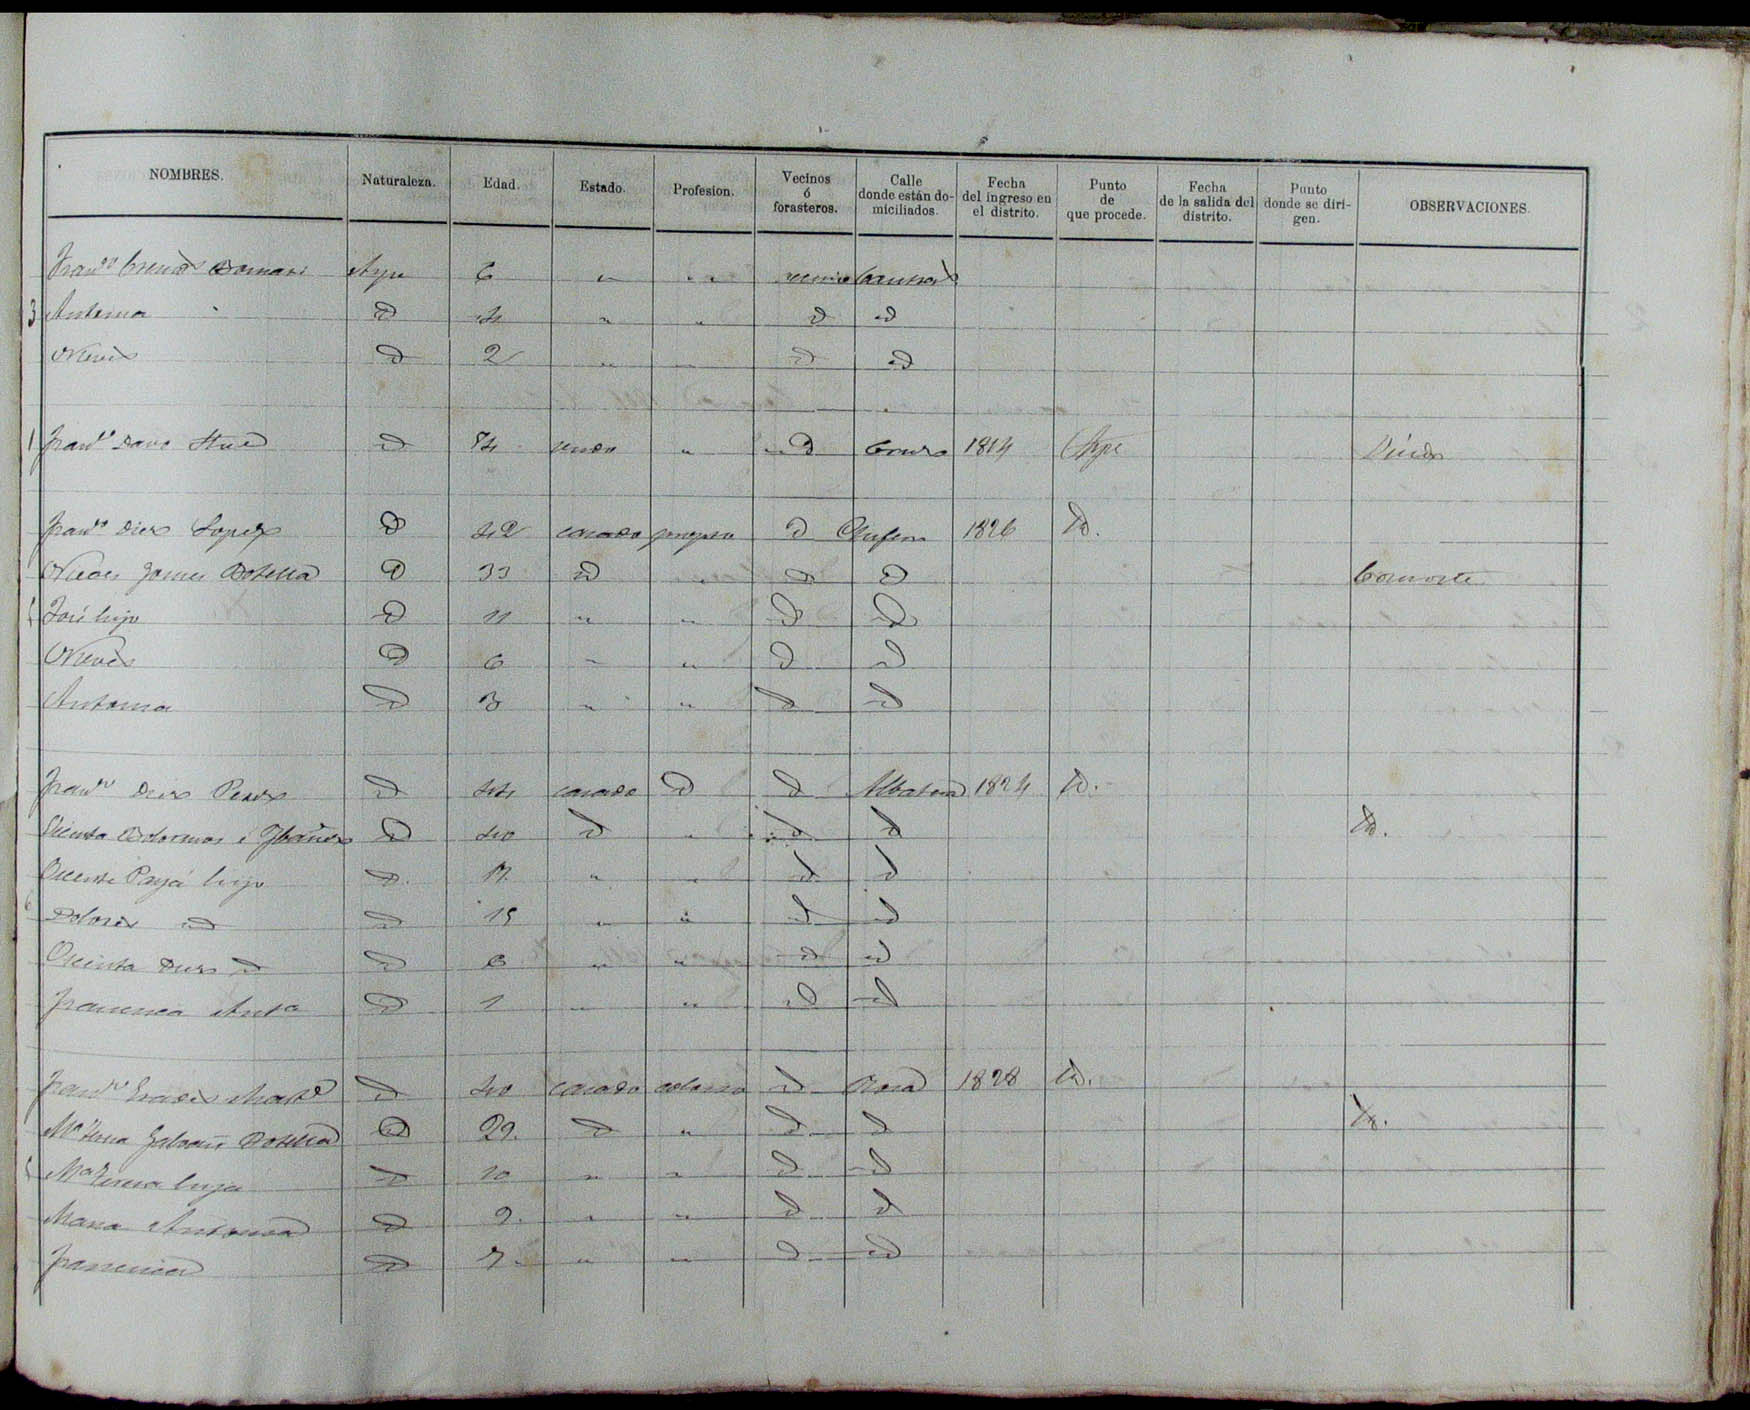 NOMBRES. Naturaleza. Edad. Estado. Profesion. Vecinos ó forasteros. Calle donde están domiciliados. Fecha del ingreso en el distrito. Punto de que procede. Fecha de la salida del distrito. Punto donde se dirigen. OBSERVACIONES.
Franco Aspe 6 " " vecino
3 Antonia id 4 " " id id
Nieves id 2 " " id id
1 Franco Davo id 74 viudo " id Cruz 1814 Aspe Viudo
Franco Diez Lopez id 42 casado id 1826 Id.
Nieves Botella id 33 id " id id Consorte
5 José hijo id 11 " " id id
Nieves id 6 " " id id
Antonia id 3 " " id id
Franco Diez Perez id 44 casado id id Albatera 1824 Id.
Vicenta é Ybañez id 40 id " id id Id.
Vicente Payá hijo id 17 " " id id
6 Dolores id id 15 " " id id
Vicenta Diez id id 6 " " id id
Francisca Anta id 1 " " id id
Franco id 40 casado id 1828 Id.
Ma Teresa Galvañ Botella id 29. id " id id Id.
5 Ma Teresa hija id 10 " " id id
Maria Antonia id 9. " " id id
Francisca id 7 " " id id